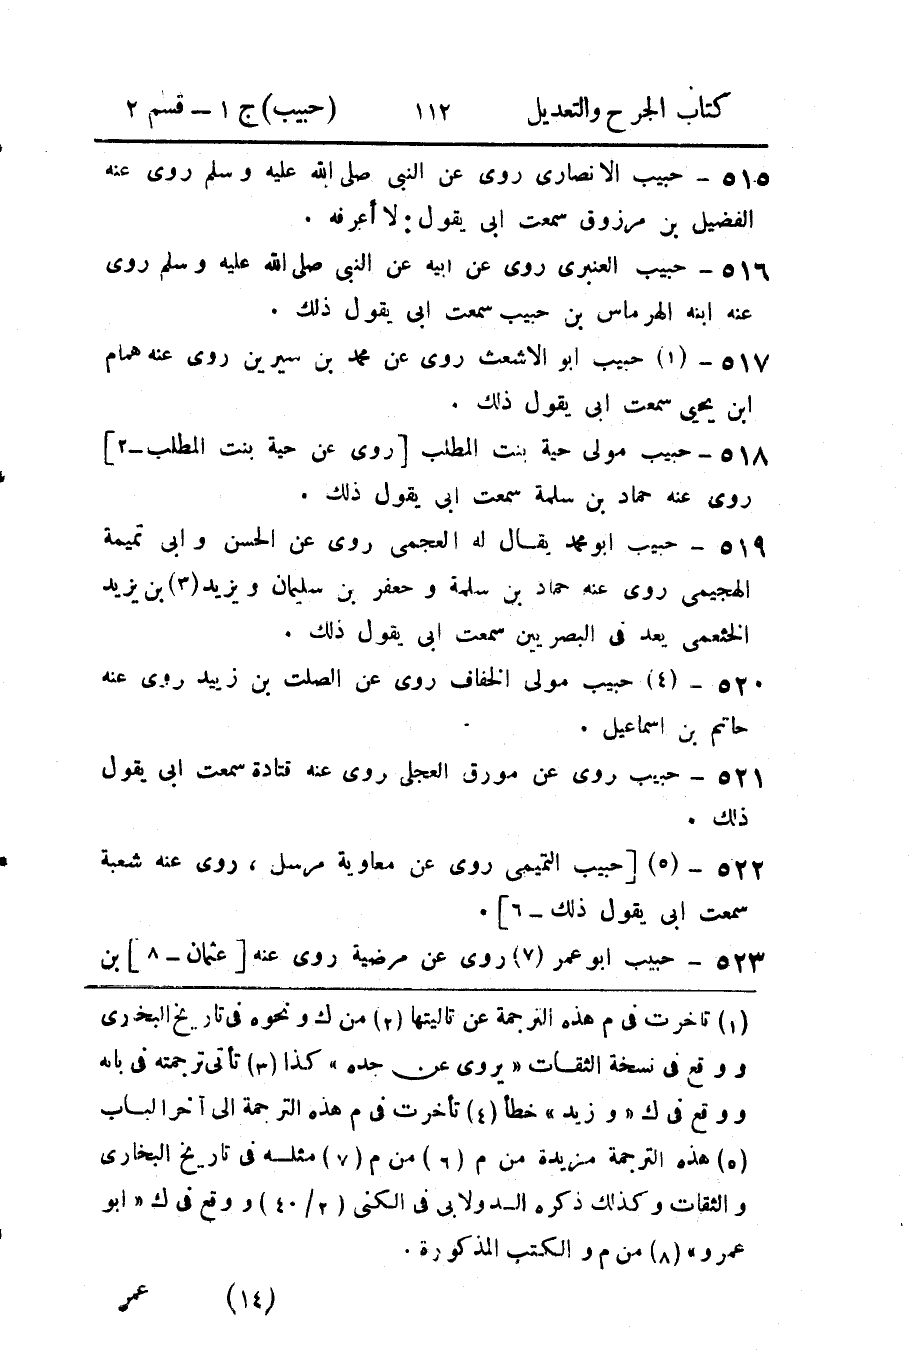 كتاب الجرح والتعديل ١١٢ (حبيب) ج ١ – قسم ٢
٥١٥ – حبيب الانصارى روى عن النبي صلى الله عليه وسلم روى عنه
الفضيل بن مرزوق سمعت ابى يقول: لا أعرفه .
٥١٦ – حبيب العنبرى روى عن ابيه عن النبي صلى الله عليه وسلم روى
عنه ابنه الهرماس بن حبيب سمعت ابى يقول ذلك .
٥١٧ – (١) حبيب ابو الاشعث روى عن محمد بن سيرين روى عنه همام
ابن يحيى سمعت ابى يقول ذلك .
٥١٨ – حبيب مولى حية بنت المطلب [روى عن حية بنت المطلب – ٢]
روى عنه حماد بن سلمة سمعت ابى يقول ذلك .
٥١٩ – حبيب ابو محمد يقال له العجمى روى عن الحسن و ابى تميمة
الهجيمى روى عنه حماد بن سلمة و جعفر بن سليمان و يزيد (٣) بن يزيد
الخثعمى يعد فى البصريين سمعت ابى يقول ذلك .
٥٢٠ – (٤) حبيب مولى الخفاف روى عن الصلت بن زبيد روى عنه
حاتم بن اسماعيل .
٥٢١ – حبيب روى عن مورق العجلى روى عنه قتادة سمعت ابى يقول
ذلك .
٥٢٢ – (٥) [حبيب التميمى روى عن معاوية مرسل ، روى عنه شعبة
سمعت ابى يقول ذلك – ٦] .
٥٢٣ – حبيب ابو عمر (٧) روى عن مرضية روى عنه [عثمان – ٨] بن
(١) تاخرت فى م هذه الترجمة عن تاليتها (٢) من ك و نحوه فى تاريخ البخارى
و وقع فى نسخة الثقات « يروى عن جده » كذا (٣) تأتى ترجمته فى بابه
و وقع فى ك « و زيد » خطأ (٤) تأخرت فى م هذه الترجمة الى آخر الباب
(٥) هذه الترجمة مزيدة من م (٦) من م (٧) مثله فى تاريخ البخارى
و الثقات و كذلك ذكره الدولابى فى الكنى (٢/ ٤٠) و وقع فى ك « ابو
عمرو » (٨) من م و الكتب المذكورة .
(١٤) عمر